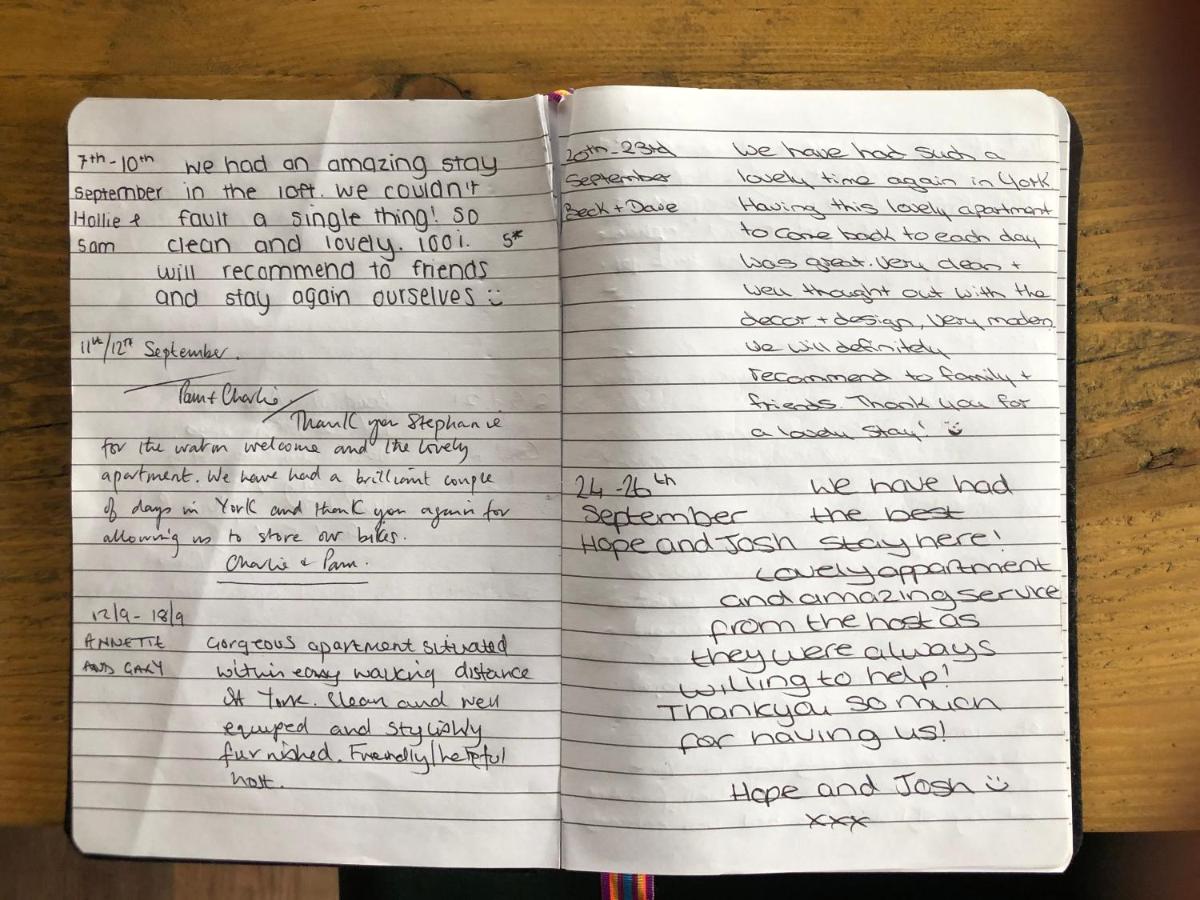 7th - 10th we had an amazing stay
september in the loft. we couldn't
Hollie & fault a single thing! so
Sam clean and lovely. 100%. 5*
will recommend to friends
and stay again ourselves :)
11th/12th September.
Pam + Charlie.
Thank you Stephanie
for the warm welcome and the lovely
apartment. We have had a brilliant couple
of days in York and thank you again for
allowing us to store our bikes.
Charlie & Pam.
12/9 - 18/9
ANNETTE Gorgeous apartment situated
AND GARY within easy walking distance
of York. Clean and well
equiped and stylishly
furnished. Friendly/helpful
host.
20th - 23rd we have had such a
September lovely time again in York
Beck + Dave Having this lovely apartment
to come back to each day
was great. Very clean +
well thought out with the
decor + design, very modern.
we will definitely
recommend to family +
friends. Thank you for
a lovely stay! :)
24 - 26th we have had
September the best
Hope and Josh stay here!
Lovely appartment
and amazing service
from the host as
they were always
willing to help!
Thankyou so much
for having us!
Hope and Josh :)
xxx